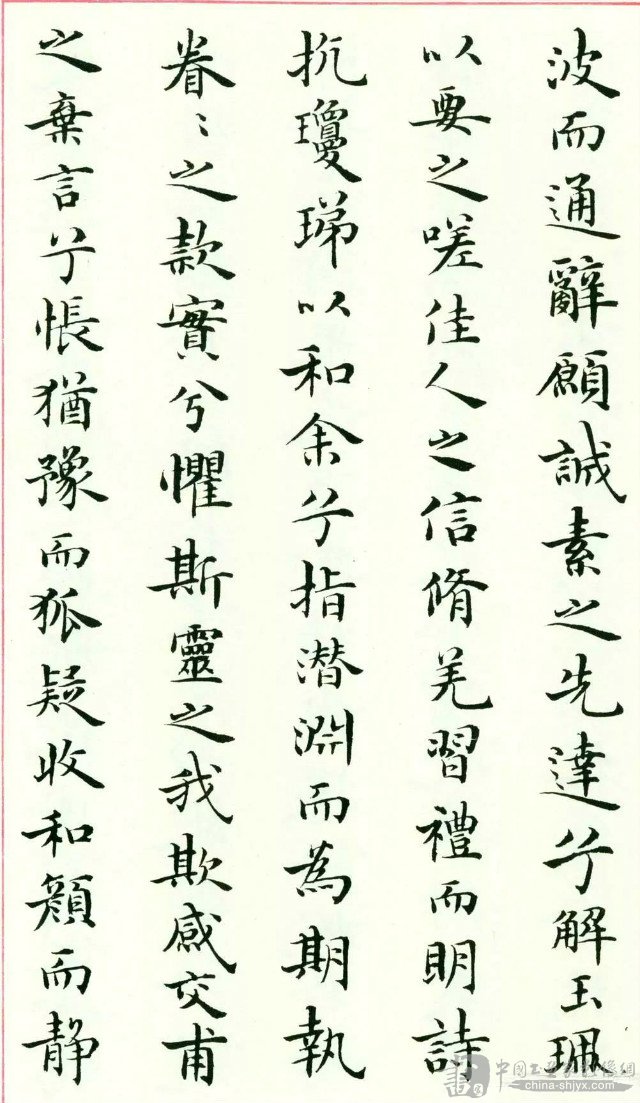 波而通辭願誠素之先達兮解玉珮
以要之嗟佳人之信脩羌習禮而明詩
抗瓊珶以和余兮指潛淵而為期執
眷〻之款實兮懼斯靈之我欺感交甫
之棄言兮悵猶豫而狐疑收和顏而静
china-shjyx.com